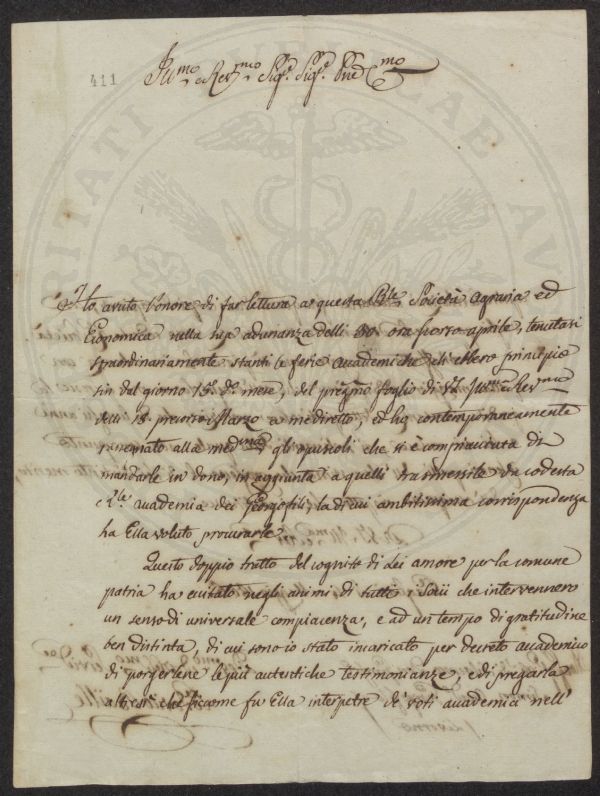 411
Ill.mo e Rev.mo Sig.r Sig.r P.ne C.mo
Ho avuto l'onore di far lettura a questa R.le Società Agraria ed
Economica nella adunanza delli 30 ora scorso aprile, tenutasi
straordinariamente stanti le ferie Accademiche ch'ebbero principio
sin dal giorno 15 d.o mese, del pregmo foglio di V.S. Ill.ma e Rev.ma
delli 13 precorso Marzo a me diretto, ed ho contemporaneamente
rassegnato alla med.ma gli opuscoli che si è compiaciuta di
mandarle in dono, in aggiunta a quelli trasmessile da codesta
R.le Accademia dei Georgofili, la di cui ambitissima corrispondenza
ha Ella voluto procurarle.
Questo doppio tratto del cognito di Lei amore per la comune
patria ha eccitato negli animi di tutti i Socii che intervennero
un senso di universale compiacenza, e ad un tempo di gratitudine
ben distinta, di cui sono io stato incaricato per decreto accademico
di porgerlene le più autentiche testimonianze, e di pregarla
altresì che siccome fu Ella interpetre de' voti accademici nell'
VERITATI